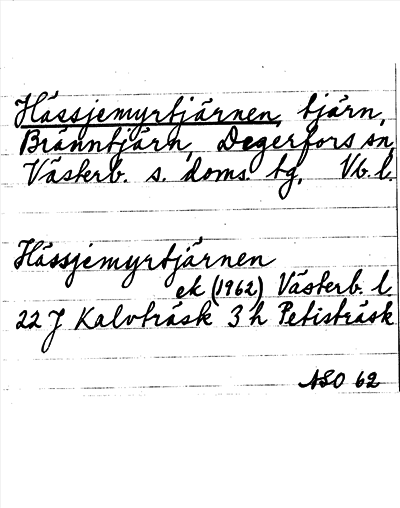 Hässjemyrtjärnen, tjärn,
Bränntjärn, Degerfors sn,
Västerb. s. doms. tg, Vb. l.
Hässjemyrtjärnen
ek (1962) Västerb. l.
22 J Kalvträsk 3 h Petisträsk
ASO 62